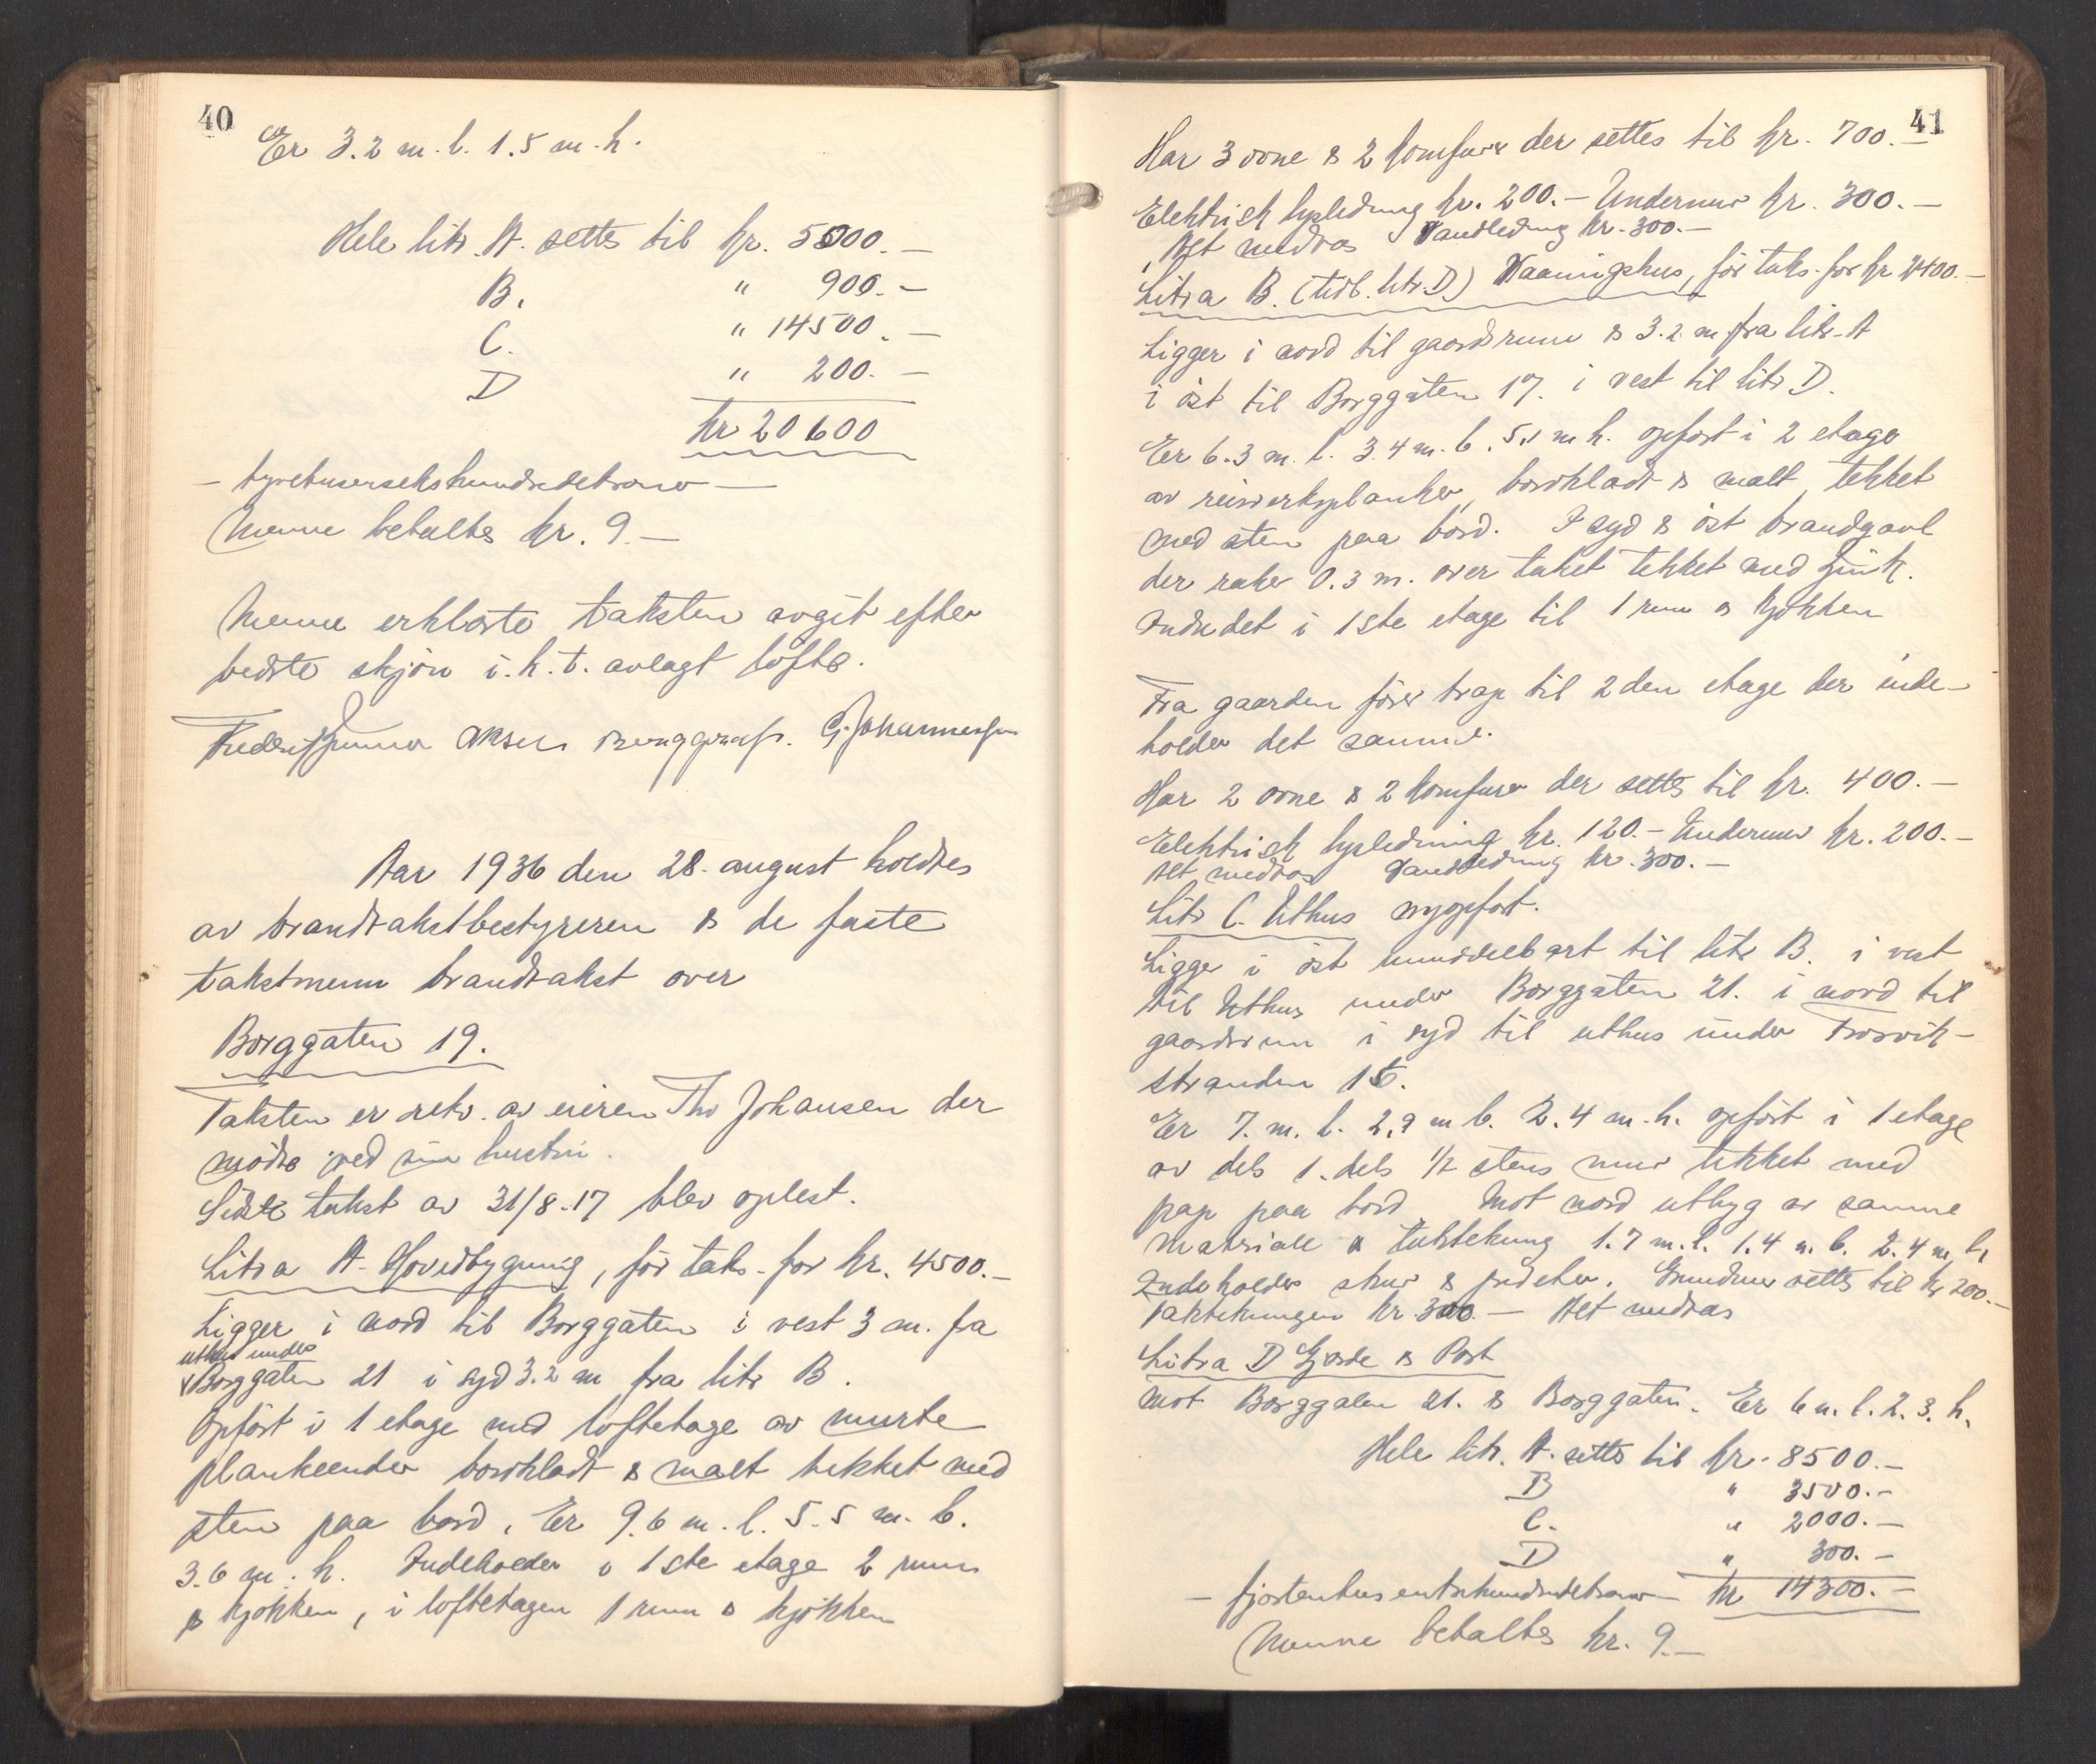 40
Er 3.2 m. l. 1.5 m. h.
Hele litr. A. settes til kr. 5000.-
B. " 900.-
C. " 14500.-
D " 200.-
kr 20600
- tyvetusensekshundredekroner -
Menne betaltes kr. 9.-
Menne erklærte taksten avgit efter
bedste skjøn i. h. t. avlagt løfte.
G. Johannessen
Aar 1936 den 28. august holdtes
av brandtakstbestyreren & de faste
takstmenn brandtakst over
Borggaten 19.
Taksten er rekv. av eieren Th. Johansen der
mødte ved sin hustru.
Sidste takst av 31/8-17 blev oplest.
Litra A. Hovedbygning, før taks. for kr. 4500.-
Ligger i nord til Borggaten i vest 3 m. fra
uthus under
Borggaten 21 i syd 3.2 m fra litr B.
Opført i 1 etage med loftetage av murte
plankeender bordklædt & malt tekket med
sten paa bord. Er 9.6 m. l. 5.5 m. b.
3.6 m. h. Indeholder i 1ste etage 2 rum
& kjøkken, i loftetagen 1 rum & kjøkken
41
Har 3 ovne & 2 komfurer der settes til kr. 700.-
Elektrisk lysledning kr. 200.- Undermur kr. 300.-
Alt medtas Vandledning kr. 300.-
Litra B. (tidl. litr. D) Vaaningshus, før taks. for kr 2400.-
Ligger i nord til gaardsrum & 3.2 m fra litr. A
i øst til Borggaten 17. i vest til litr D.
Er 6.3 m. l. 3.4 m. b. 5.1 m h. opført i 2 etage
av reisverksplanker, bordklædt & malt, tekket
med sten paa bord. I syd & øst brandgavl
der raker 0.3 m. over taket tekket med zink.
Indredet i 1ste etage til 1 rum & kjøkken
Fra gaarden fører trap til 2den etage der inde-
holder det samme.
Har 2 ovne & 2 komfurer der settes til kr. 400.-
Elektrisk lysledning kr. 120.- Undermur kr. 200.-
Alt medtas Vandledning kr. 300.-
Litr C. Uthus nyopført.
Ligger i øst umiddelbart til litr B. i vest
til Uthus under Borggaten 21. i nord til
gaardsrum i syd til uthus under Frosvik-
stranden 15.
Er 7. m. l. 2.9 m b. 2.4 m. h. opført i 1 etage
av dels 1. dels 1/2 stens mur tekket med
pap paa bord. Mot nord utbyg av samme
materiale & taktekning 1.7 m. l. 1.4 m. b. 2.4 m. h.
Indeholder skur & priveter. Grundmur settes til kr 200.-
Taktekningen kr. 300.- Alt medtas
Litra D Gjærde & Port
mot Borggaten 21. & Borggaten. Er 6 m. l. 2.3. h.
Hele litr. A. settes til kr. 8500.-
B " 3500.-
C. " 2000.-
D " 300.-
- fjortentusentrehundredekroner - kr 14300.-
Menne betaltes kr. 9.-